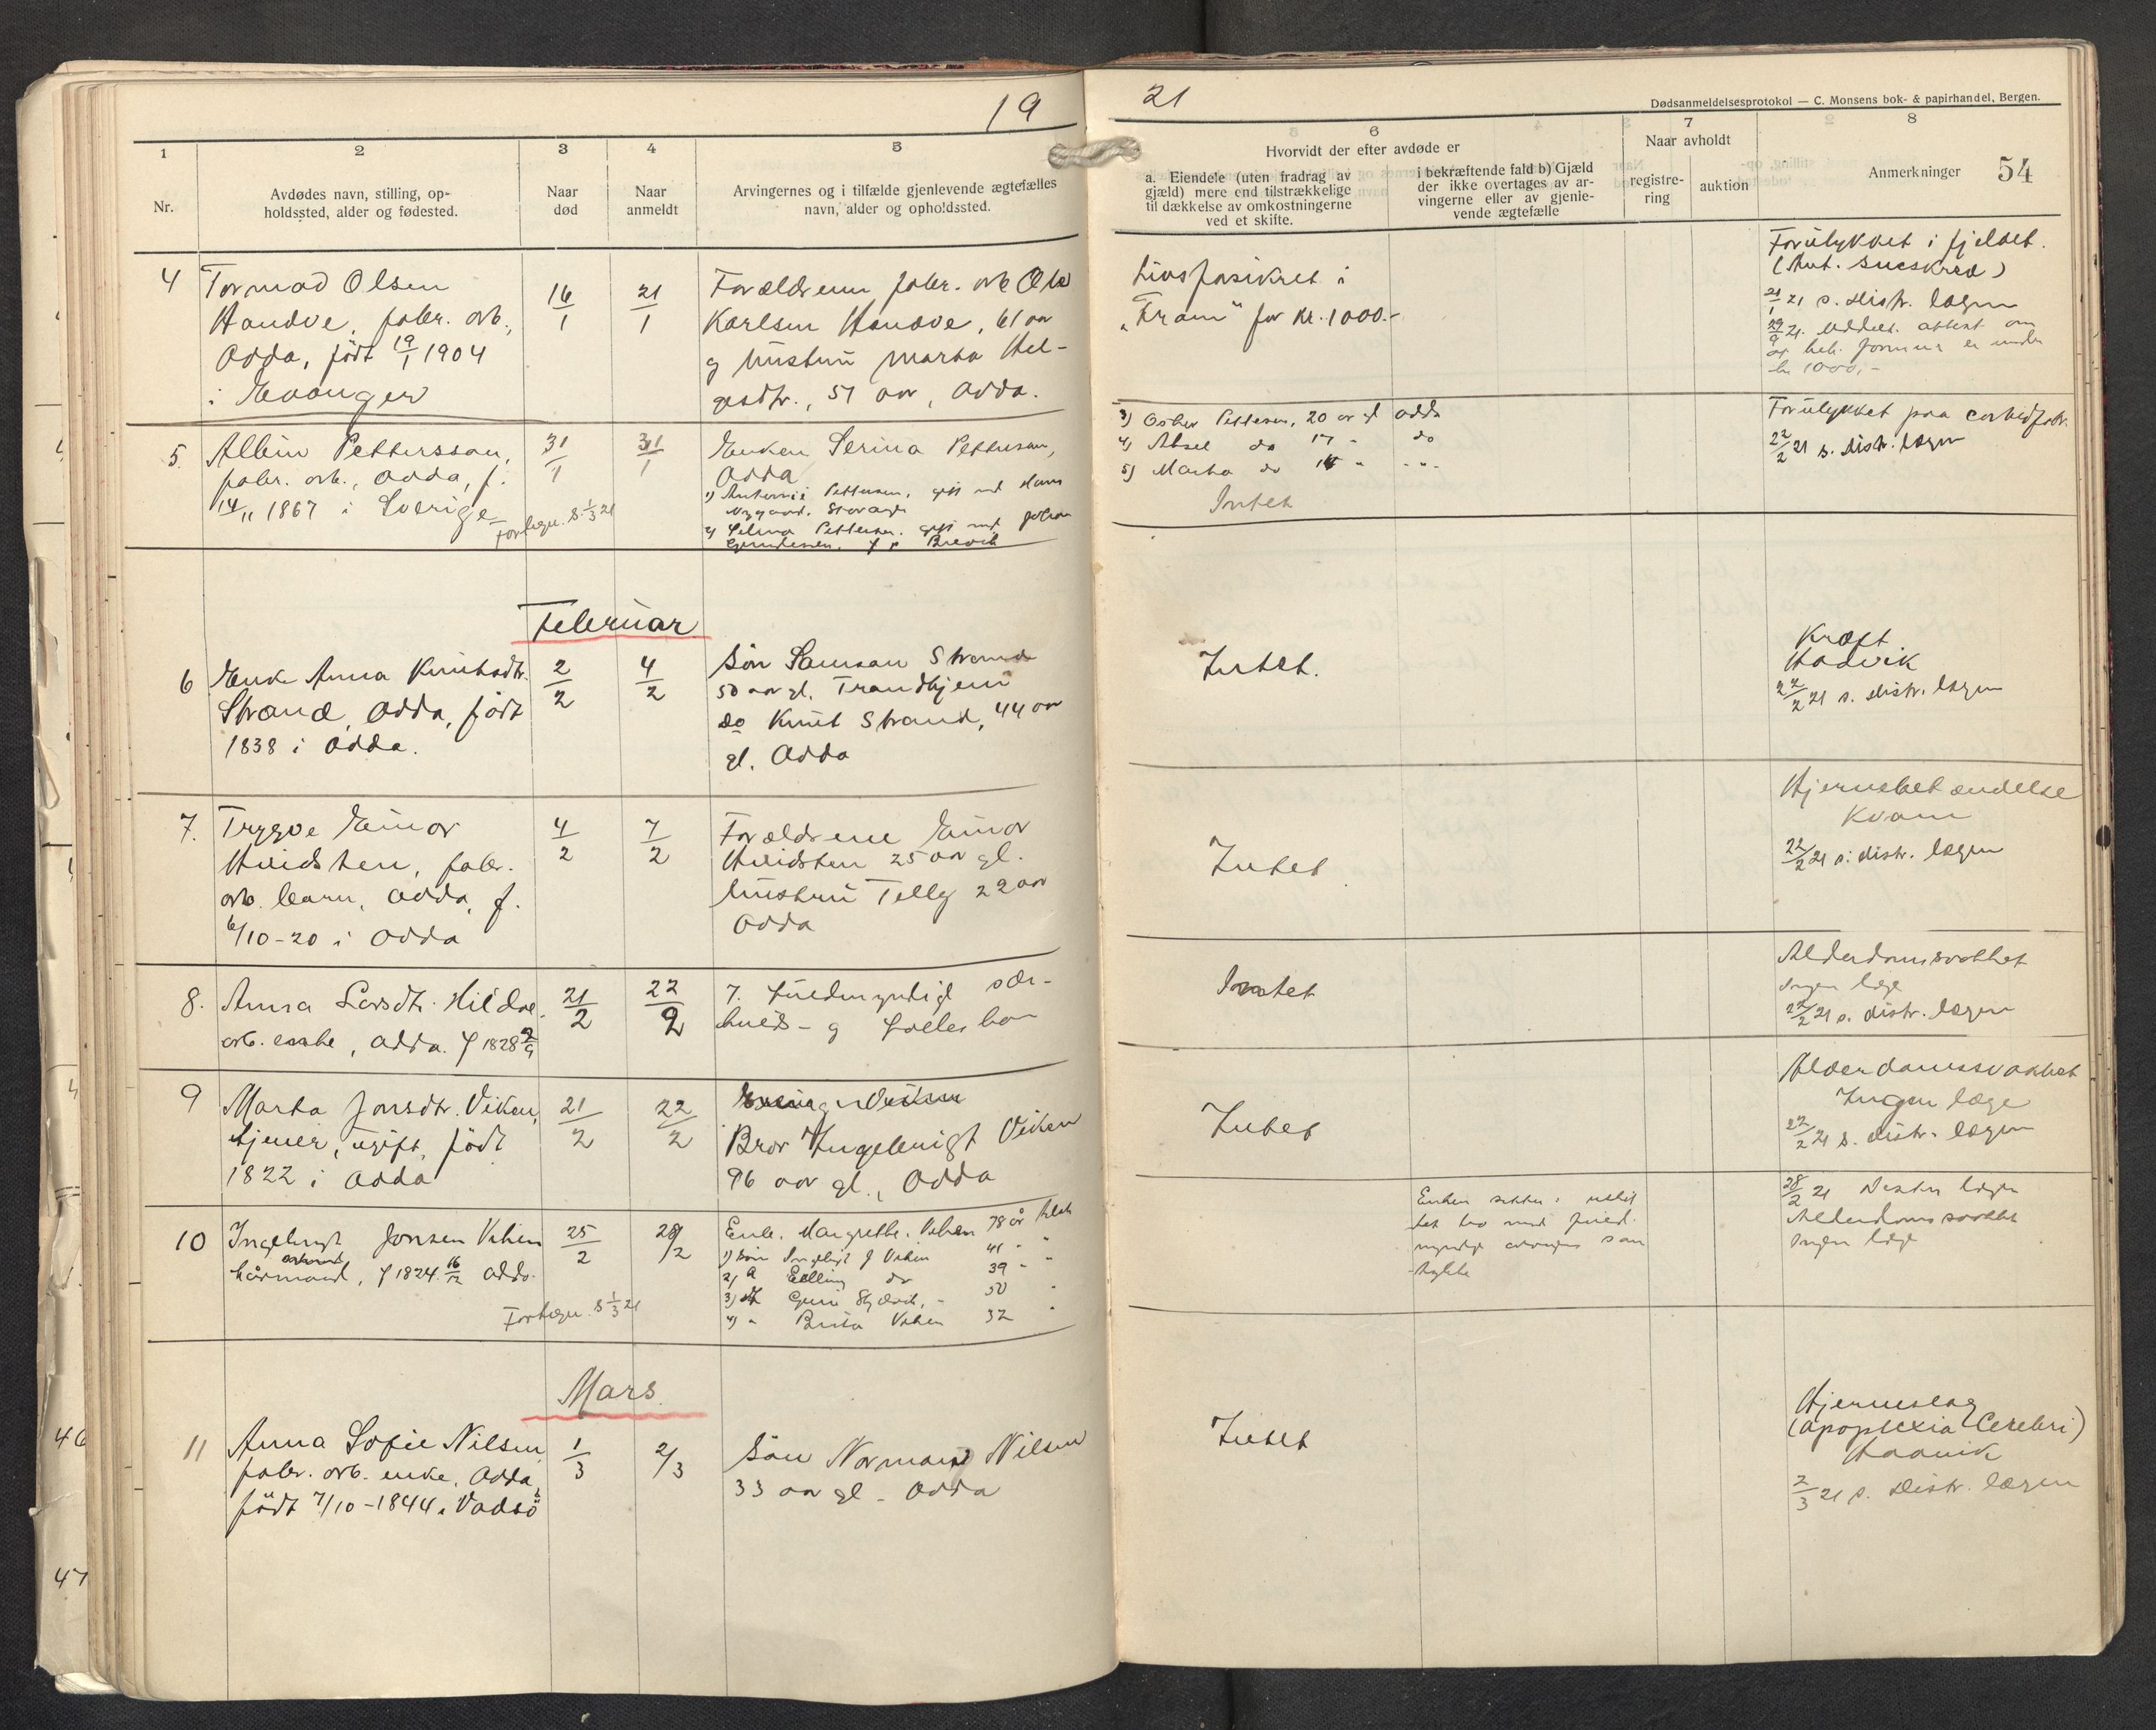 19
1
2
3
4
5
Nr.
Avdødes navn, stilling, op-
holdssted, alder og fødested.
Naar
død
Naar
anmeldt
Arvingernes og i tilfælde gjenlevende ægtefælles
navn, alder og opholdssted.
4
Tormod Olsen
Handve, fabr. arb.,
Odda, född 19/1 1904
i Evanger
16/1
21/1
Forældrene fabr. arb Ole
Karlsen Handve, 61 aar
g hustru Marta Hel-
gesdtr., 51 aar, Odda.
5.
Albin Pettersson,
fabr. arb., Odda, f.
14/11 1867 i Sverige
Fortegn. S 1/3 21
31/1
31/1
Enken Serina Pettersen,
Odda
1) Pettersen, gift med Hans
2) Selma Pettersen. gift med Johan
Brevik
Februar
6
Enke Anna Knutsdtr.
Strand, Odda, født
1838 i Odda.
2/2
4/2
Søn Samson Strand
50 aar gl. Trondhjem
do Knut Strand, 44 aar
gl. Odda
7.
Trygve Einar
Hvidsten, fabr.
arb. barn, Odda, f.
6/10-20 i Odda
4/2
7/2
Forældrene Einar
Hvidsten 25 aar gl.
hustru Telly 22 aar
Odda
8.
Anna Larsdtr. Hildal
arb. enke, Odda. f 1828 2/9
21/2
22/2
7. fuldmyndige sær-
kuls- g fælles barn
9
Marta Jonsdtr. Viken,
tjener, ugift, født
1822 i Odda
21/2
22/2
Bror Ingebrigt Viken
96 aar gl., Odda
10
Ingebrigt Jonsen Viken
kårmand, f 1824 16/12 Odda.
Fortegn. S 1/3 21
25/2
28/2
Enke. Margrethe Viken 78 år
1) Søn Ingebrigt J Viken 41 " "
2) " Elling do 39 " "
3) Dt Guri 50 "
4) " Brita Viken 32 "
Mars.
11
Anna Sofie Nilsen
fabr. arb. enke, Odda,
født 7/10-1844 i Vadsö
1/3
2/3
Søn Norman Nilsen
33 aar gl - Odda
21
Dødsanmeldelsesprotokol — C. Monsens bok- & papirhandel, Bergen.
6
7
8
Hvorvidt der efter avdøde er
Naar avholdt
a. Eiendele (uten fradrag av
gjæld) mere end tilstrækkelige
til dækkelse av omkostningerne
ved et skifte.
i bekræftende fald b) Gjæld
der ikke overtages av ar-
vingerne eller av gjenle-
vende ægtefælle
registre-
ring
auktion
Anmerkninger
54
Livsforsikret i
„Fram" for Kr. 1000.-
Forulykket i fjeldet.
(Ant. sneskred)
21/1 21 s. distr. lægen
29/9 21. Uddelt. attest om
at beh. formue er under
kr 1000,-
3) Oskar Pettersen, 20 år gl Odda
4) Aksel do 17 - do
5) Marta do 15 " - " -
Intet
Forulykket paa carbidfabr.
22/2 21 s. distr. lægen
Intet.
Kræft
Haavik
22/2 21 s. distr. lægen
Intet
Hjernebetændelse
Kvam
22/2 21 s. distr. lægen
Intet
Alderdomssvakhet
Ingen læge
22/2 21 s. distr. lægen
Intet
Alderdomssvakhet
Ingen læge
22/2 21 s. distr. lægen
Enken sitter i uskif
tet bo med fuld-
myndige arvinges sam
tykke
28/2 21 Distr lægen
Alderdomssvakhet
Ingen læge
Intet
Hjerneslag
(Apoplexia Cerebri)
Haavik
2/3 21 s. Distr. lægen